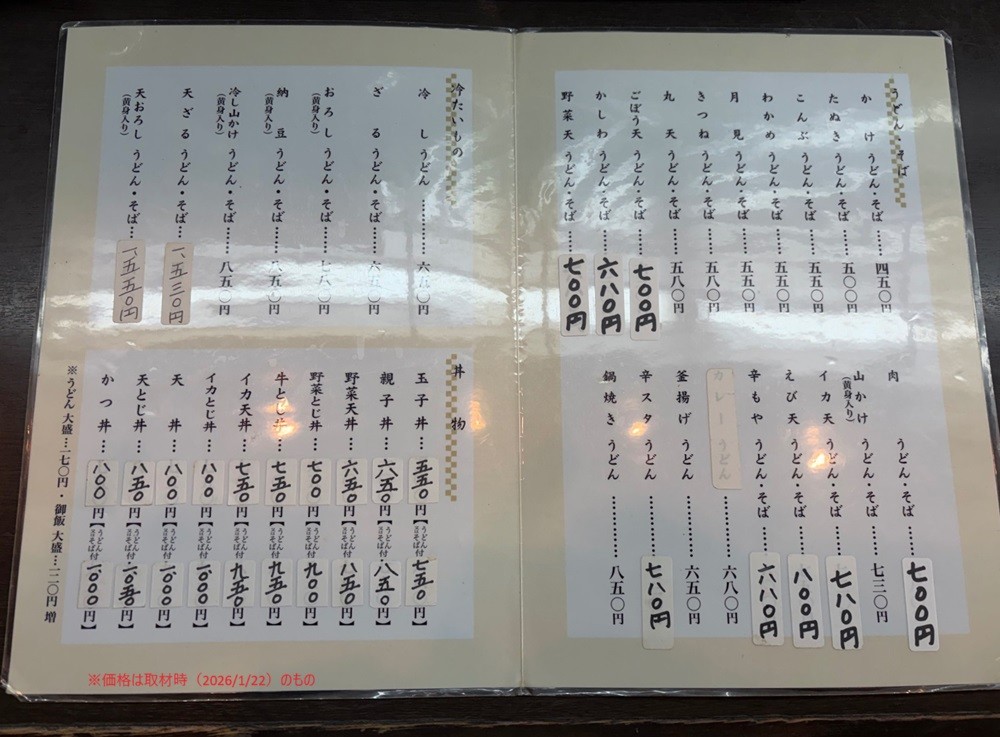 うどん・そば
かけ うどん・そば……四五〇円
たぬき うどん・そば……五〇〇円
こんぶ うどん・そば……五五〇円
わかめ うどん・そば……五五〇円
月見 うどん・そば……五五〇円
きつね うどん・そば……五八〇円
丸天 うどん・そば……五八〇円
ごぼう天 うどん・そば……七〇〇円
かしわ うどん・そば……六八〇円
野菜天 うどん・そば……七〇〇円
肉 うどん・そば……七〇〇円
山かけ(黄身入り) うどん・そば……七三〇円
イカ天 うどん・そば……七八〇円
えび天 うどん・そば……八〇〇円
辛もや うどん・そば……六八〇円
カレー うどん…………六八〇円
釜揚げ うどん…………六五〇円
辛スタ うどん…………七八〇円
鍋焼き うどん…………八五〇円
冷たいもの
冷し うどん…………円
ざる うどん・そば……円
おろし(黄身入り) うどん・そば……円
納豆(黄身入り) うどん・そば……円
冷し山かけ(黄身入り) うどん・そば……八五〇円
天ざる うどん・そば…一、五三〇円
天おろし(黄身入り) うどん・そば…一、五五〇円
丼物
玉子丼…五五〇円【うどん又はそば付 七五〇円】
親子丼…六五〇円【うどん又はそば付 八五〇円】
野菜天丼…六五〇円【うどん又はそば付 八五〇円】
野菜とじ丼…七〇〇円【うどん又はそば付 九〇〇円】
牛とじ丼…七五〇円【うどん又はそば付 九五〇円】
イカ天丼…七五〇円【うどん又はそば付 九五〇円】
イカとじ丼…八〇〇円【うどん又はそば付 一〇〇〇円】
天丼…八〇〇円【うどん又はそば付 一〇〇〇円】
天とじ丼…八五〇円【うどん又はそば付 一〇五〇円】
かつ丼…八〇〇円【うどん又はそば付 一〇〇〇円】
※うどん大盛…一七〇円・御飯大盛…一二〇円増
※価格は取材時（2026/1/22）のもの